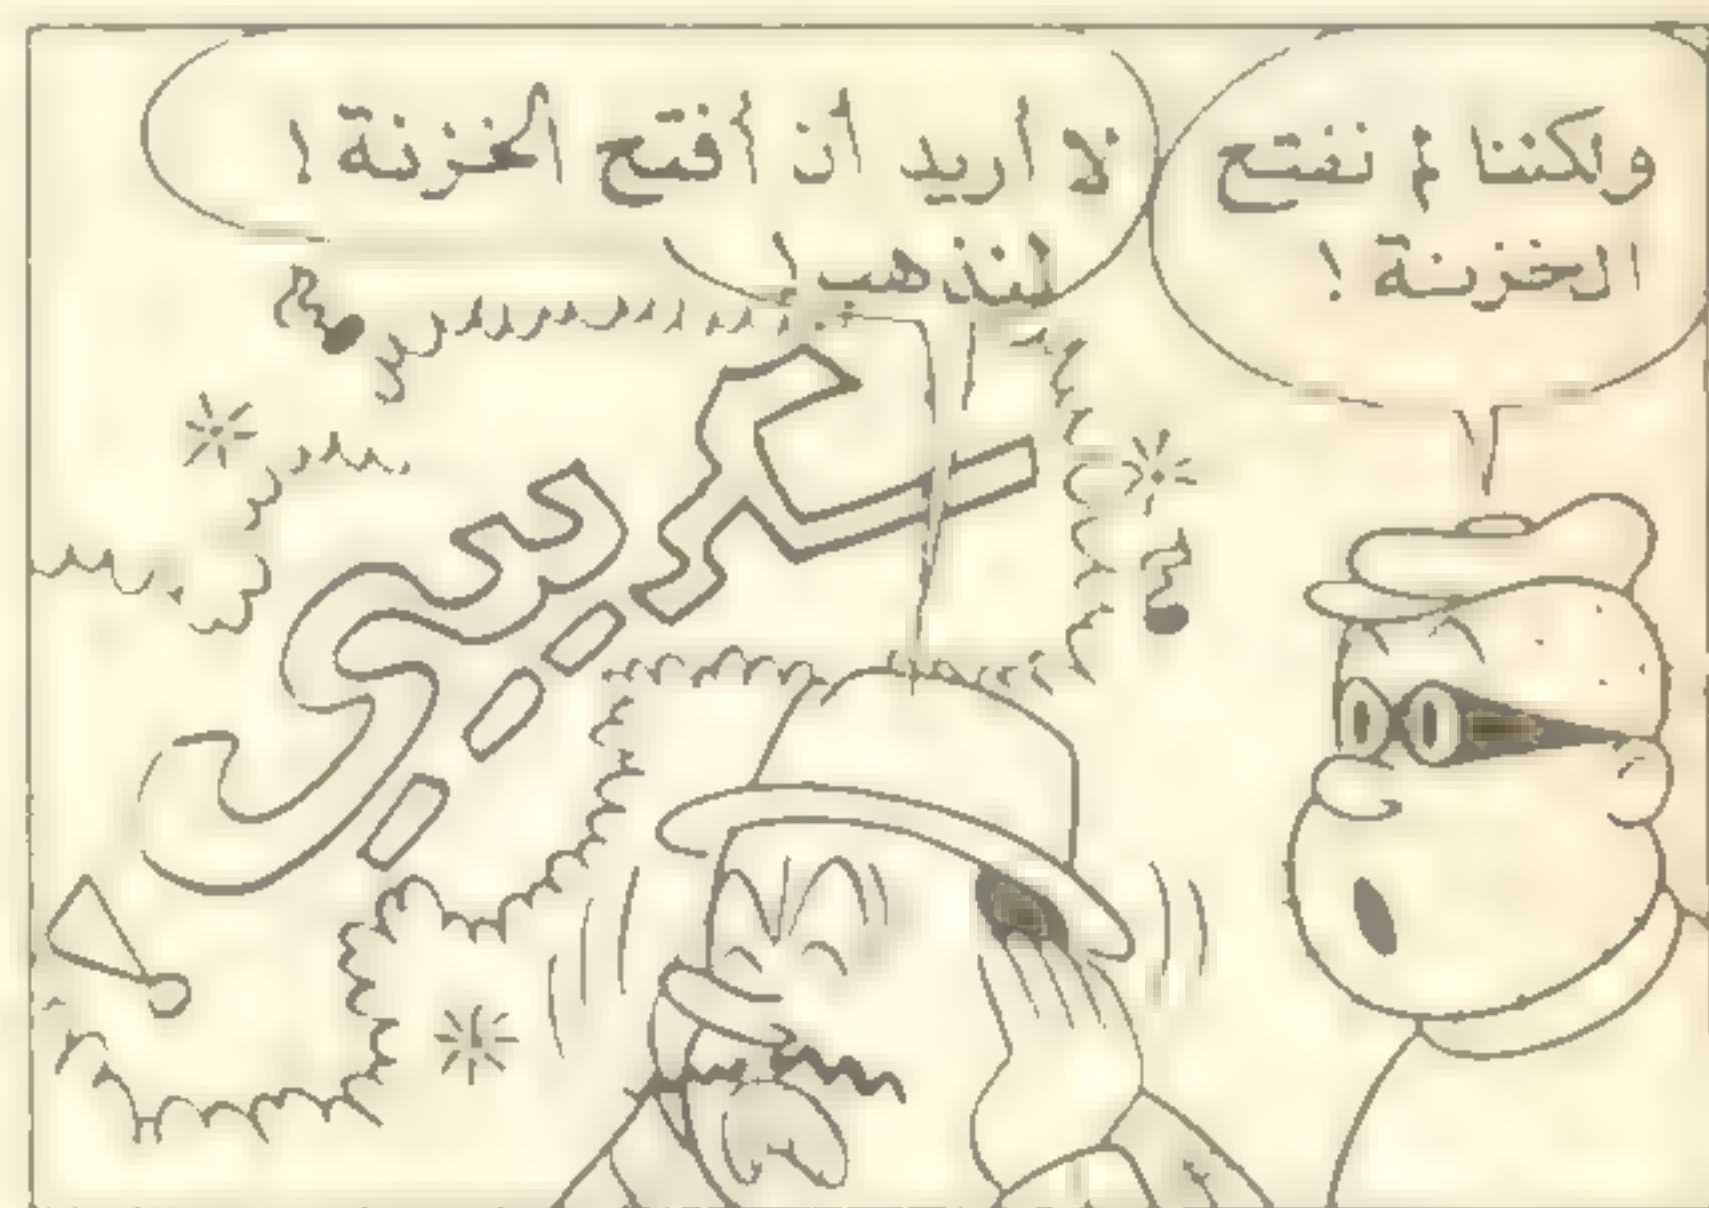 ولكننا لم نفتح
الخزنة !
لا أريد أن أفتح الخزنة !
لنذهب !